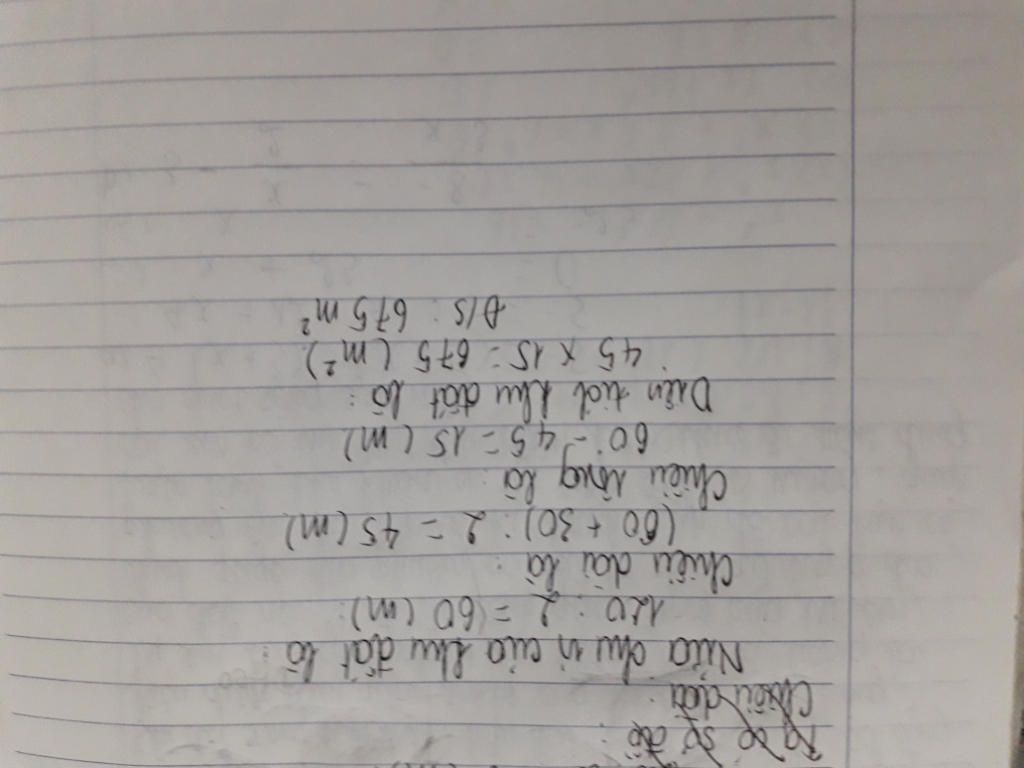 Ta có sơ đồ :
Chiều dài :
Nửa chu vi của khu đất là :
120 : 2 = 60 (m)
Chiều dài là :
(60 + 30) : 2 = 45 (m)
Chiều rộng là :
60 - 45 = 15 (m)
Diện tích khu đất là :
45 x 15 = 675 (m²)
Đ/S : 675 m²